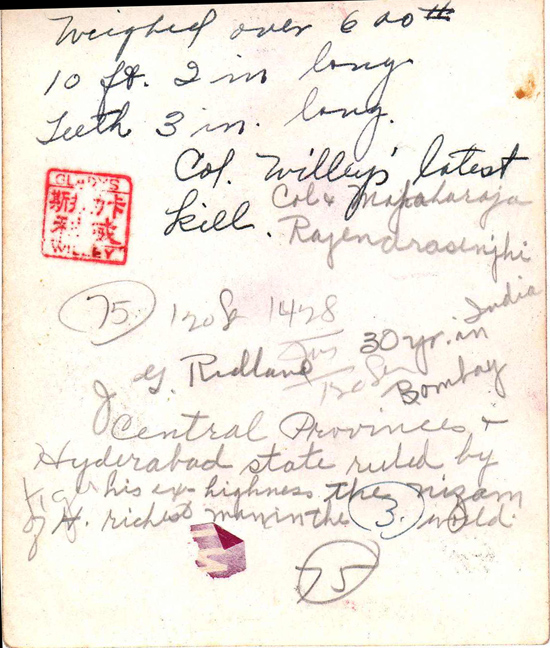 Weighed over 600#
10 ft. 2 in long.
Teeth 3 in. long.
Col. Willey's latest
kill.
Col & Maharaja
Rajendrasinghi
India
GLADYS
WILLEY
75
1208 1428
30 yr. in
Bombay
G. Redland
Central Provinces &
Hyderabad state ruled by
his ex-highness the nizam
of H. richest man in the world.
Tiger
3.
75